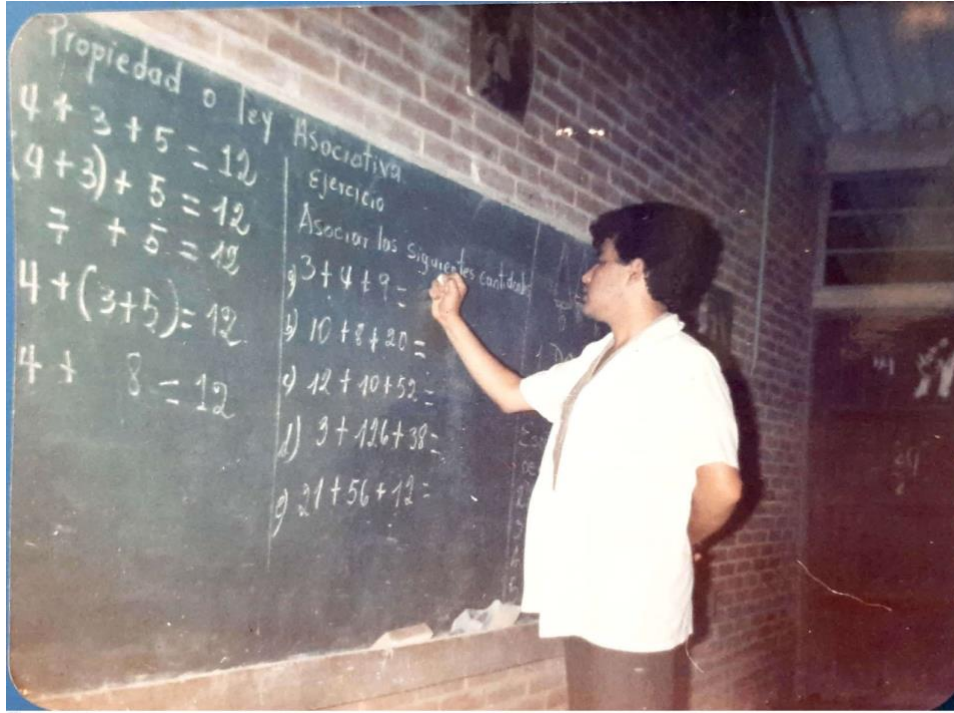 Propiedad o ley Asociativa.
4 + 3 + 5 = 12
(4+3) + 5 = 12
7 + 5 = 12
4 + (3+5) = 12
4 + 8 = 12
Ejercicio
Asociar las siguientes cantidades
a) 3 + 4 + 9 =
b) 10 + 8 + 20 =
c) 12 + 10 + 52 =
d) 3 + 126 + 38 =
e) 21 + 56 + 12 =